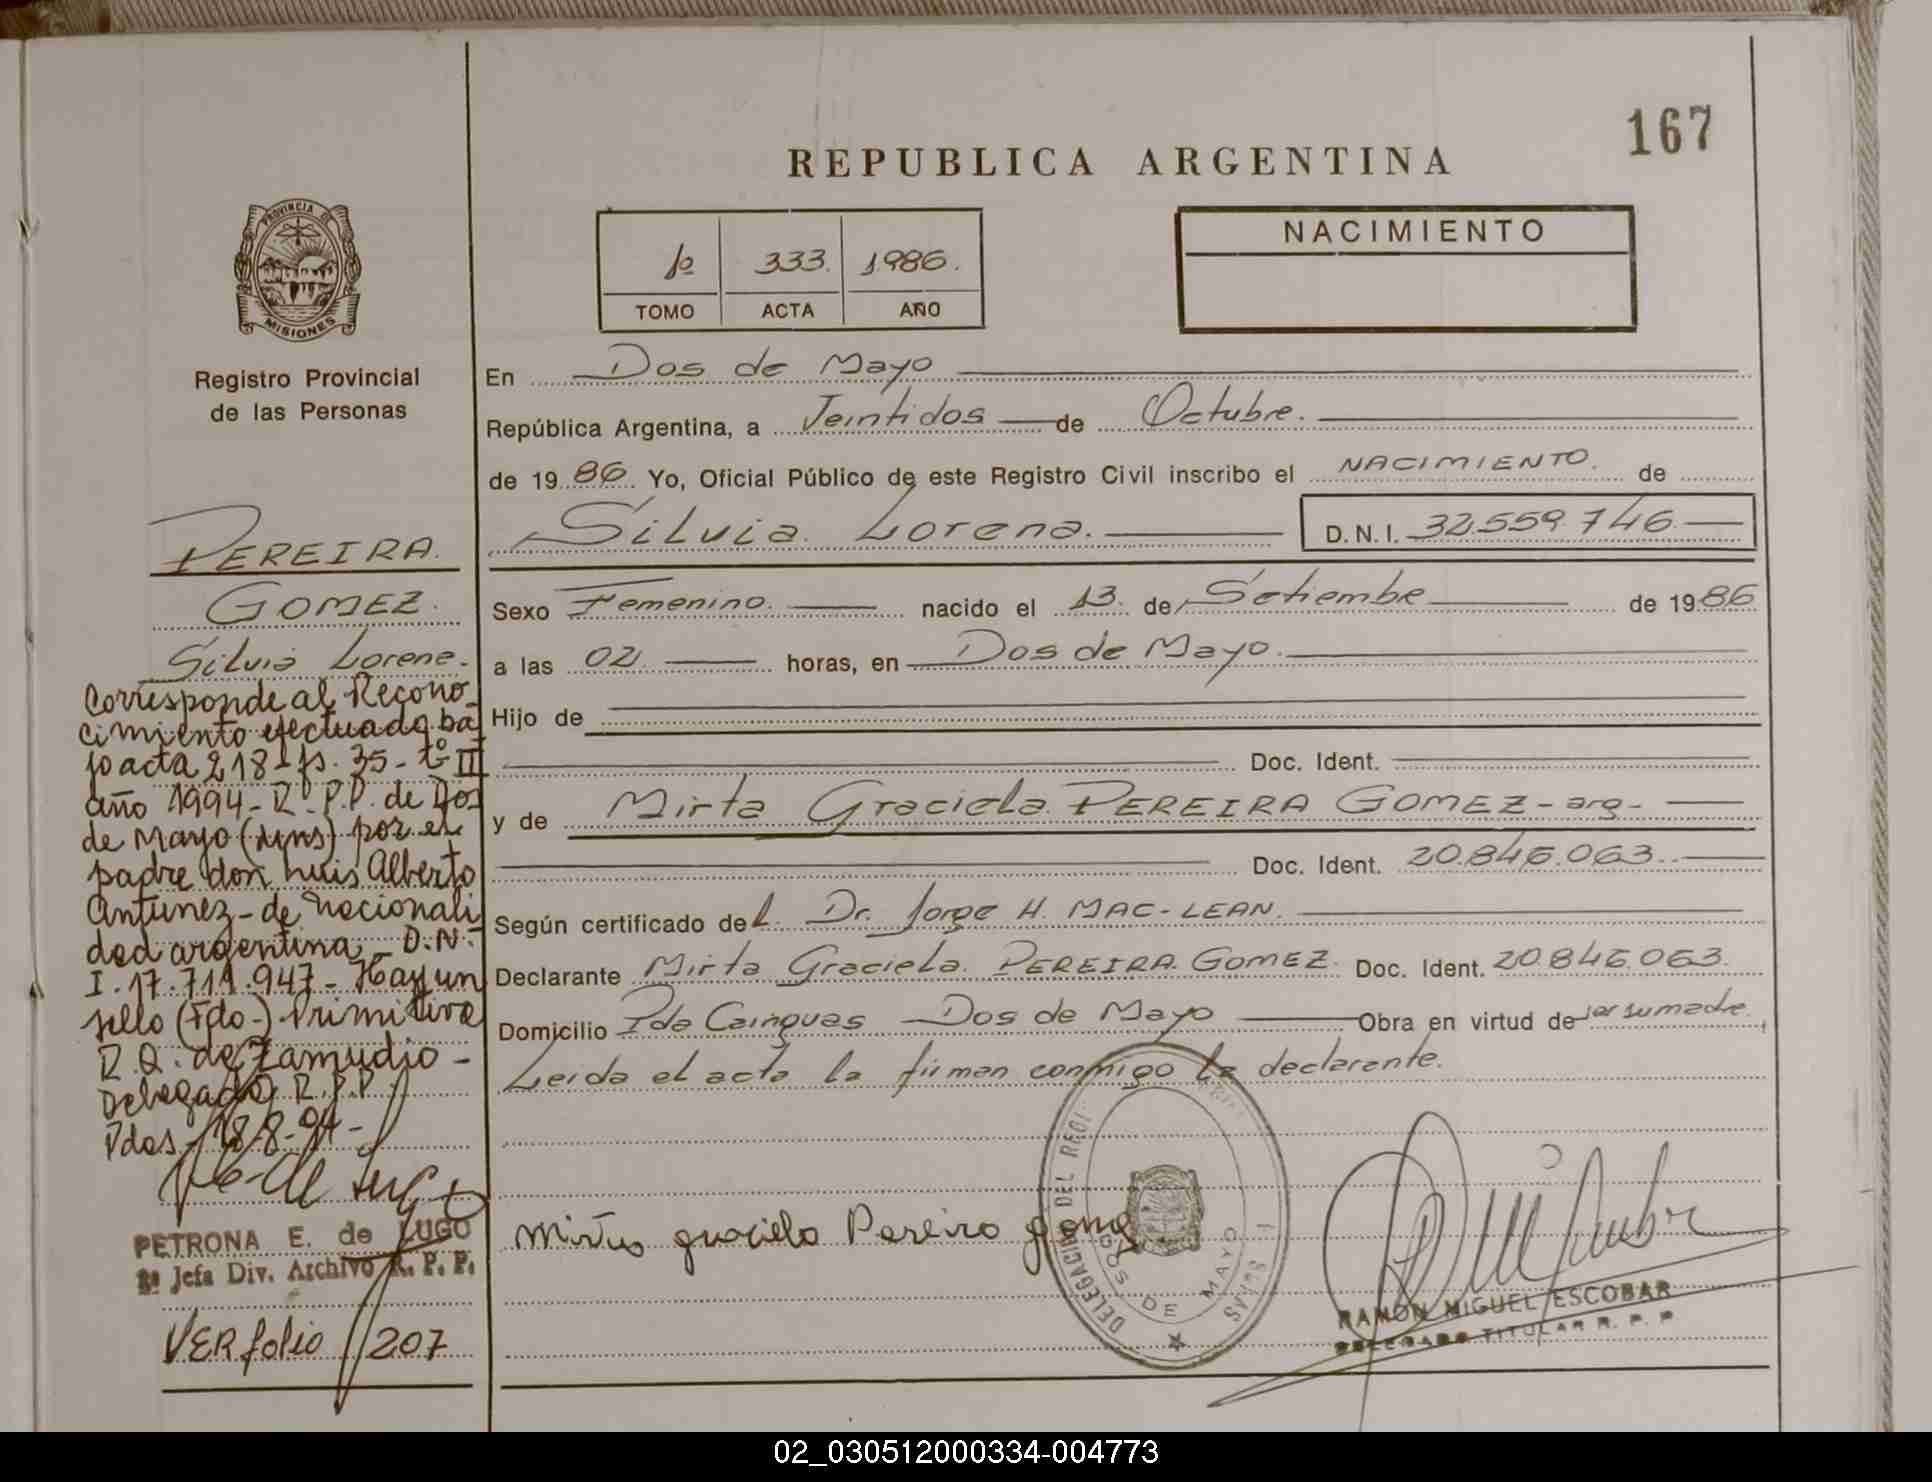 167
REPUBLICA ARGENTINA
PROVINCIA DE
MISIONES
Registro Provincial
de las Personas
1º 333. 1986.
TOMO ACTA AÑO
NACIMIENTO
En Dos de Mayo
República Argentina, a Veintidos de Octubre.
de 1986. Yo, Oficial Público de este Registro Civil inscribo el NACIMIENTO. de
Silvia Lorena. D.N.I. 32.559.746
Sexo Femenino. nacido el 13. de Setiembre de 1986
a las 02 horas, en Dos de Mayo.
Hijo de
Doc. Ident.
y de Mirta Graciela PEREIRA GOMEZ - arg-
Doc. Ident. 20.846.063.
Según certificado del. Dr. Jorge H. MAC-LEAN.
Declarante Mirta Graciela PEREIRA GOMEZ. Doc. Ident. 20.846.063.
Domicilio Pda Cainguas Dos de Mayo Obra en virtud de ser su madre.
Leida el acta la firman conmigo la declarante.
PEREIRA
GOMEZ.
Silvia Lorena.
Corresponde al Recono-
cimiento efectuado ba
jo acta 218 fs. 35 - tº III
año 1994 - R.P.P. de Dos
de Mayo (Mns) por el
padre don Luis Alberto
Antunez - de nacionali
dad argentina - D.N.
I. 17.711.947 - Hay un
sello (Fdo-) Primitiva
R.Q. de Zamudio -
Delegada R.P.P.
Pdas - 18-8-94 -
PETRONA E. de LUGO
2ª Jefa Div. Archivo R. P. P.
VER folio 207
Mirta graciela Pereira gomez
DELEGACION DEL REGI
DOS DE MAYO
RAMON MIGUEL ESCOBAR
DELEGADO TITULAR R. P. P.
02_030512000334-004773